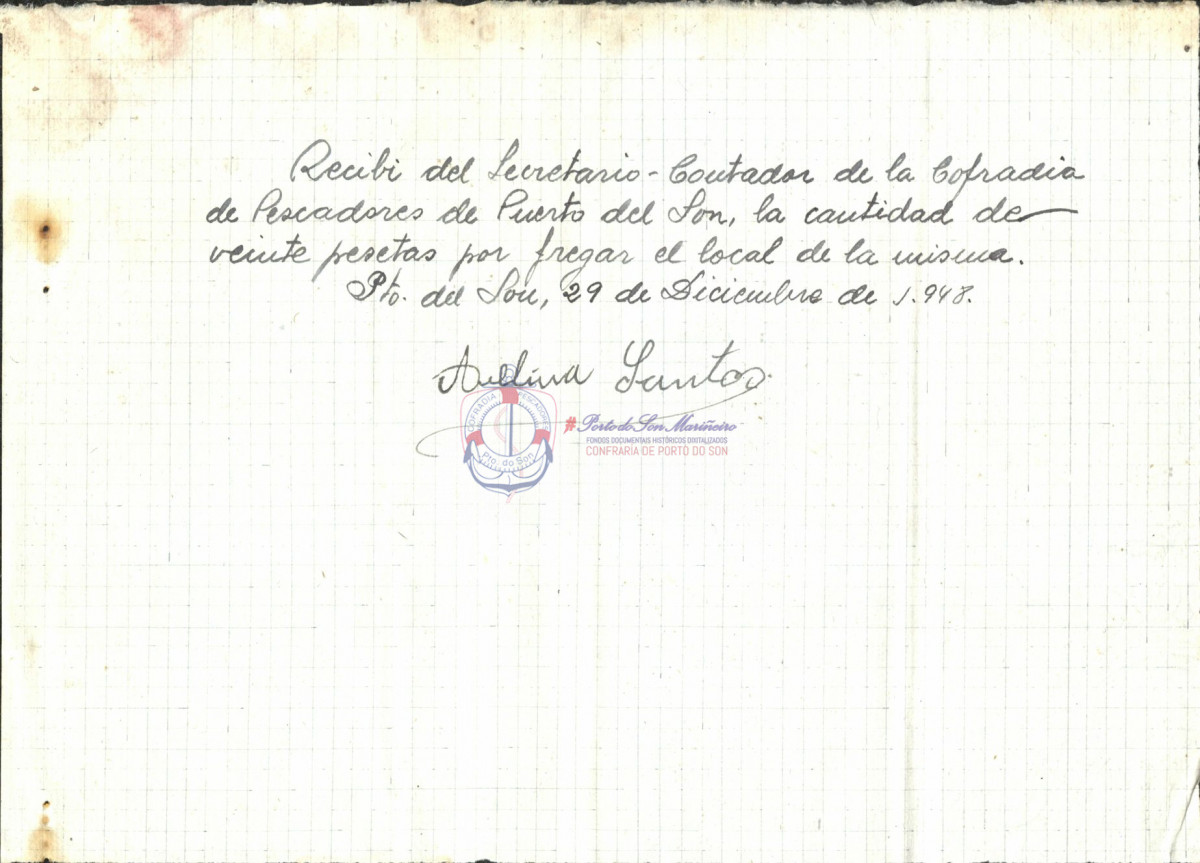 Recibi del Secretario-Contador de la Cofradia
de Pescadores de Puerto del Son, la cantidad de
veinte pesetas por fregar el local de la misma.
Pto. del Son, 29 de Diciembre de 1.948.
Santos
COFRADIA PESCADORES
Pto. do Son
#Porto do Son Mariñeiro
FONDOS DOCUMENTAIS HISTÓRICOS DIXITALIZADOS
CONFRARIA DE PORTO DO SON